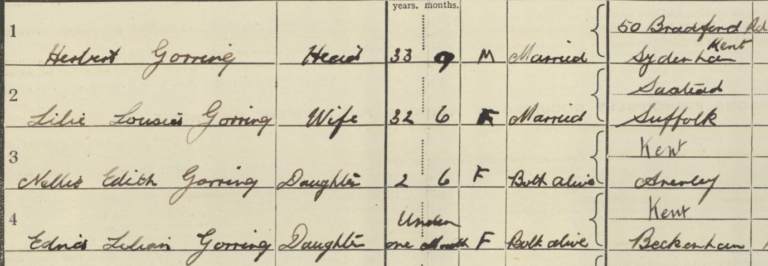 years. months.
1 50 Bradford Rd
Herbert Gorring Head 33 9 M Married Sydenham Kent
2 Saxtead
Lilie Lousie Gorring Wife 32 6 F Married Suffolk
3 Kent
Nellie Edith Gorring Daughter 2 6 F Both alive Anerley
4 Under Kent
Edna Lilian Gorring Daughter one Month F Both alive Beckenham